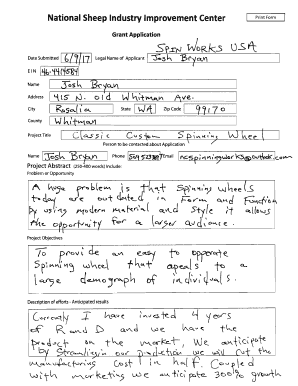 National Sheep Industry Improvement Center
Print Form
Grant Application
Spin Works USA
Date Submitted 6/9/17 Legal Name of Applicant Josh Bryan
EIN 46-4449584
Name Josh Bryan
Address 415 N. old Whitman Ave.
City Rosalia State WA Zip Code 99170
County Whitman
Project Title Classic Custom Spinning Wheel
Person to be contacted about Application
Name Josh Bryan Phone Email
Project Abstract (250-400 words) Include:
Problem or Opportunity
A huge problem is that Spinning wheels
today are out dated in Form and Function
by using modern material and style it allows
the opportunity for a larger audience.
Project Objectives
To provide an easy to opperate
Spinning wheel that apeals to a
large demograph of individuals.
Description of efforts - Anticipated results
Currently I have invested 4 years
of R and D and we have the
product on the market, We anticipate
by Streamlining our production we will cut the
manufacturing cost in half. Coupled
with marketing we anticipate 300% growth